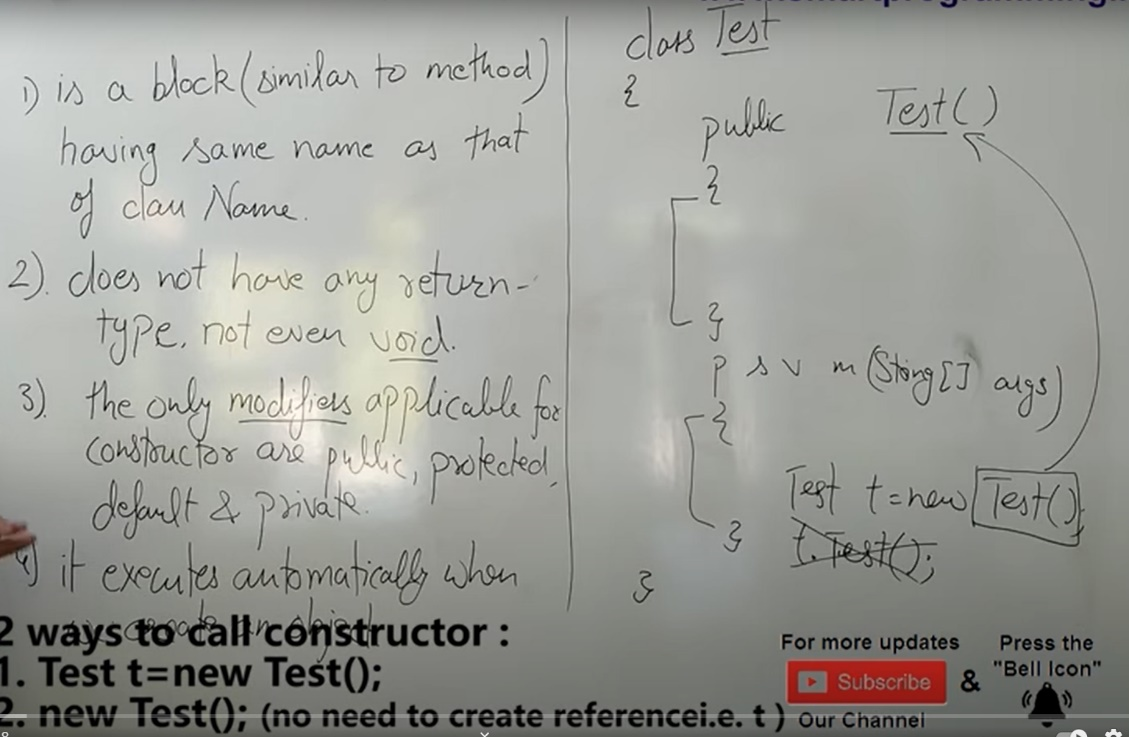 1) is a block (similar to method)
having same name as that
of class Name.
2). does not have any return-
type, not even void.
3). the only modifiers applicable for
constructor are public, protected,
default & private.
4) it executes automatically when
create an object
class Test
{
public Test()
{
}
p s v m (String[] args)
{
Test t=new Test();
t.Test();
}
}
2 ways to call constructor :
1. Test t=new Test();
2. new Test(); (no need to create referencei.e. t )
For more updates
Subscribe
&
Press the
"Bell Icon"
Our Channel